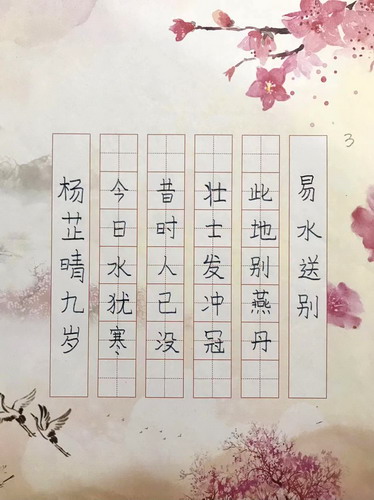 易水送别
此地别燕丹
壮士发冲冠
昔时人已没
今日水犹寒
杨芷晴九岁
3